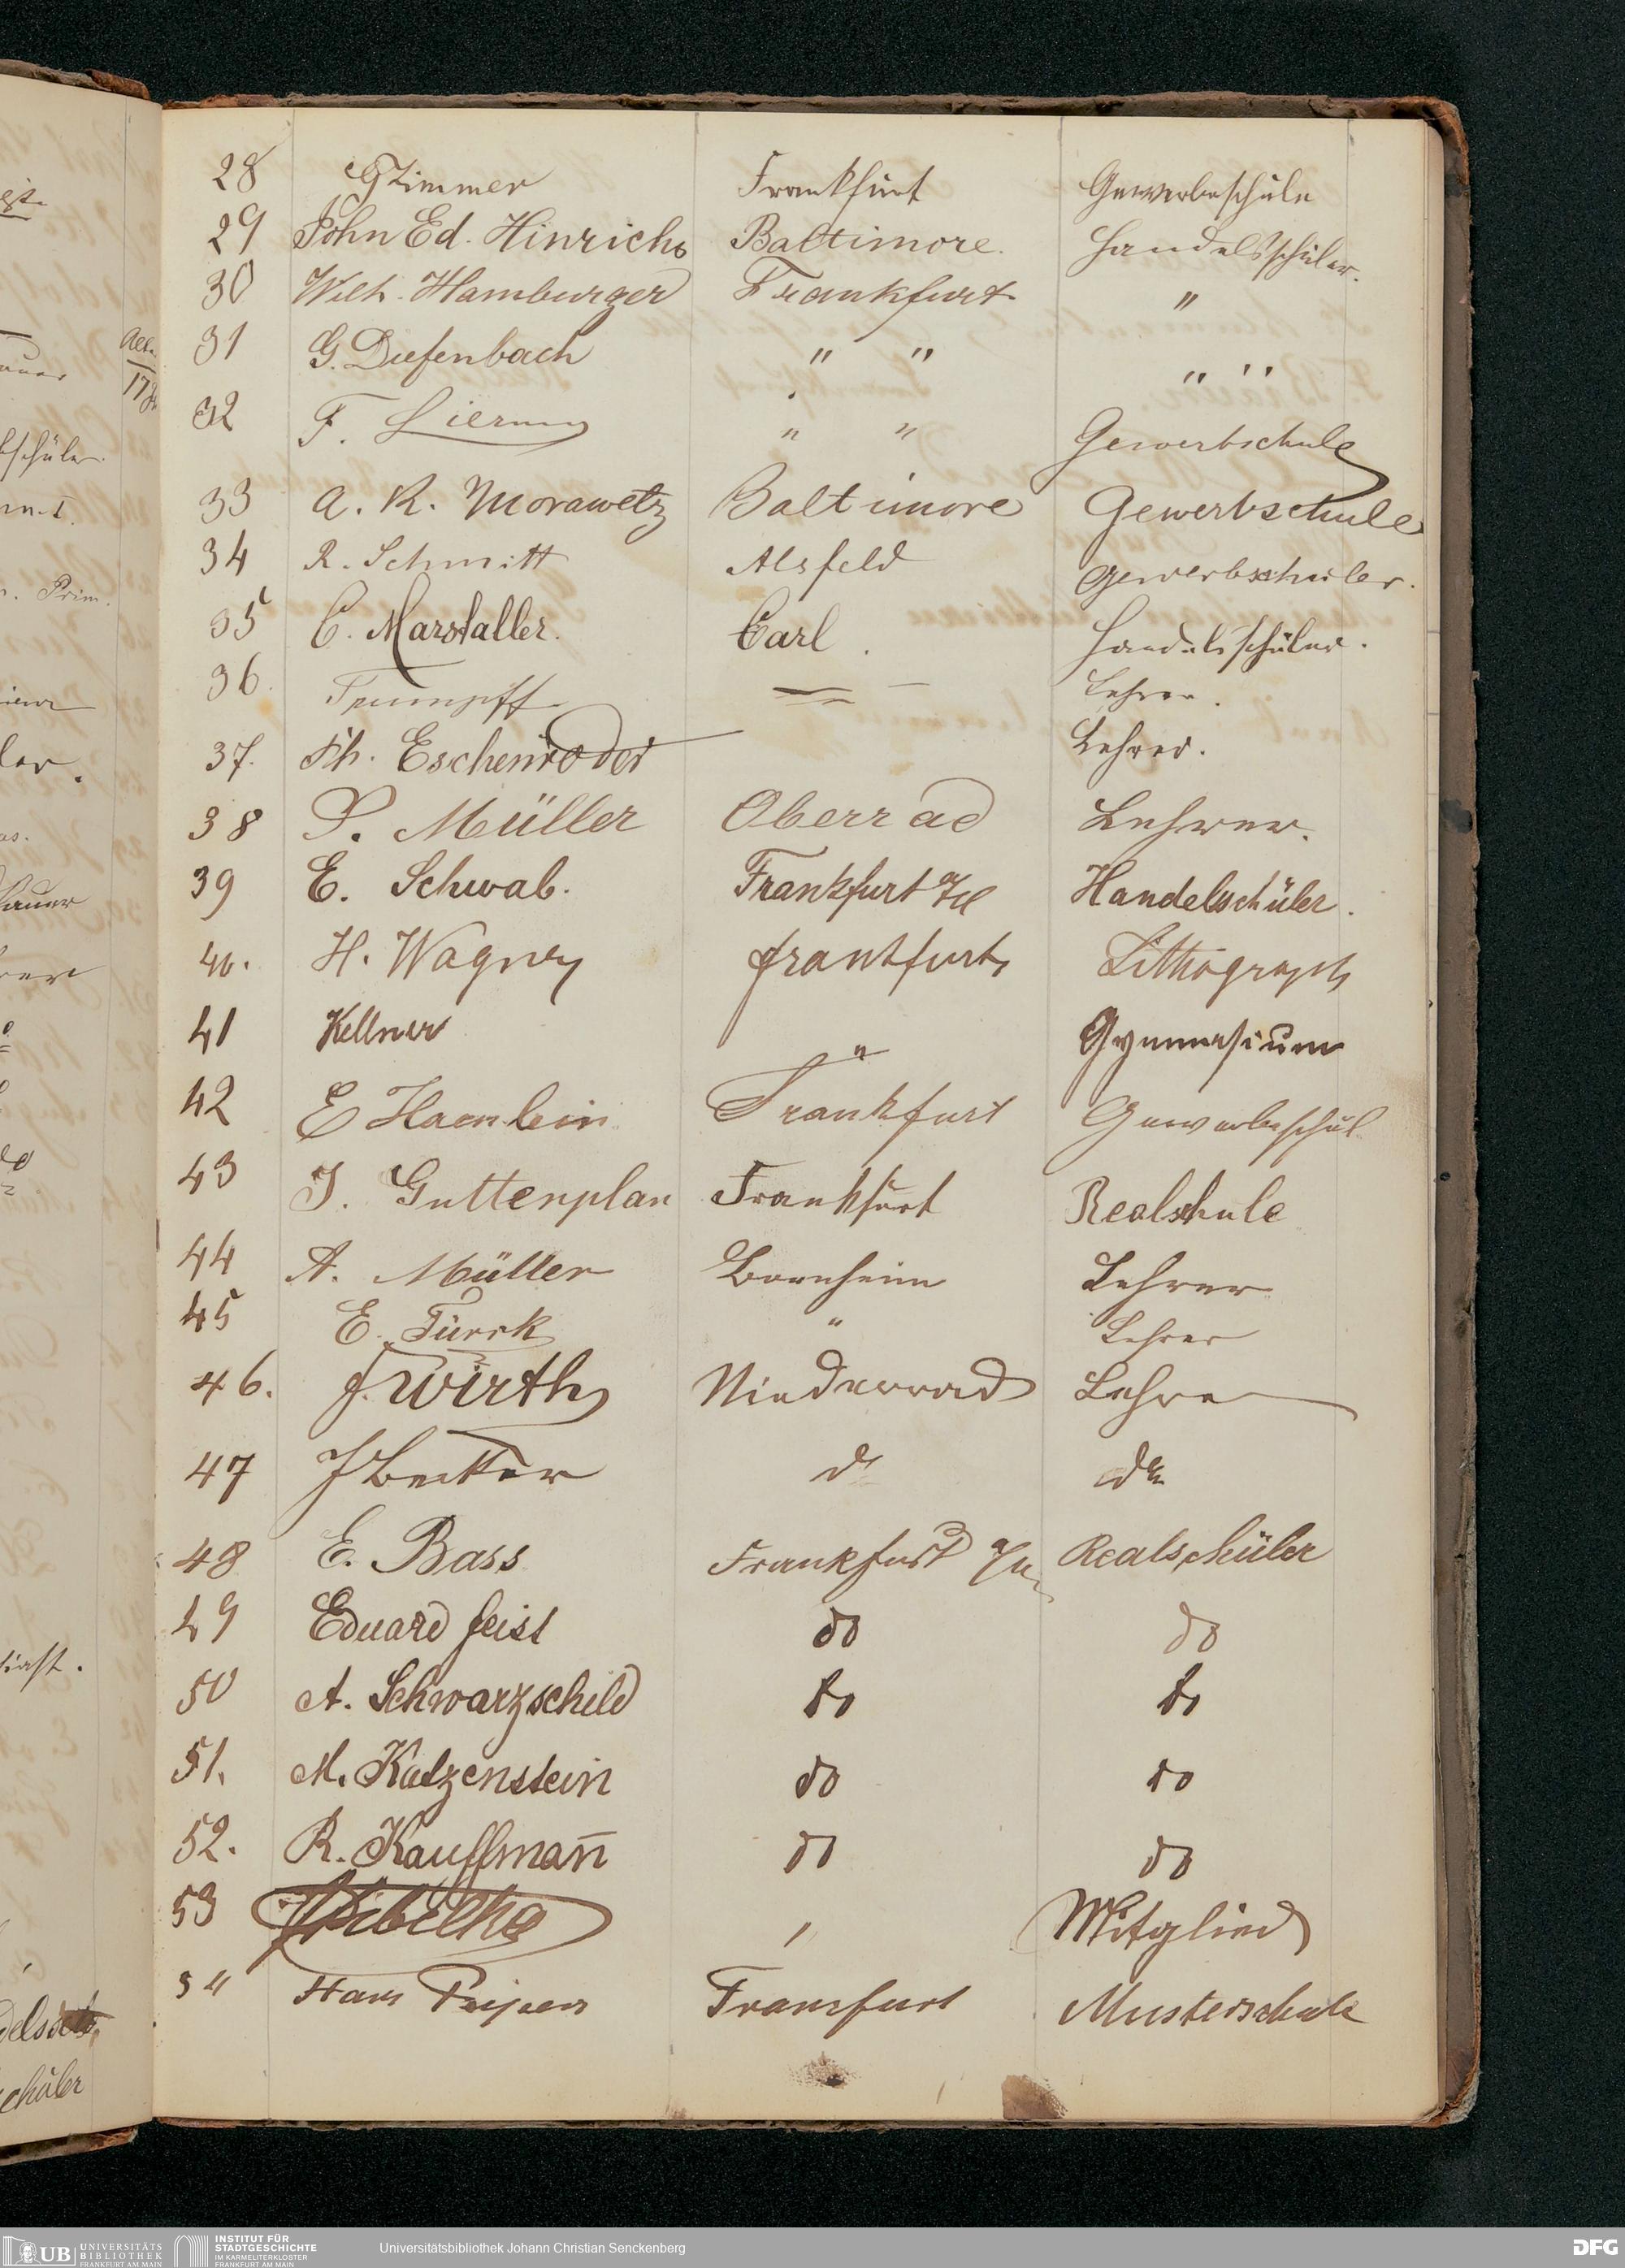 28 G Zimmer Frankfurt Gewerbeschule
29 John Ed. Hinrichs Baltimore. Handelsschüler.
30 Wilh. Hamburger Frankfurt "
31 G. Diefenbach " " " "
32 F. " " Gewerbschule
33 A. R. Morawetz Baltimore Gewerbschule
34 R. Schmitt Alsfeld Gewerbschuler.
35 C. Marstaller. Carl. Handelsschüler.
36. Trumpff Lehrer.
37. Ph. Eschenröder Lehrer.
38 P. Müller Oberrad Lehrer.
39 E. Schwab. Frankfurt a/M Handelschüler.
40. H. Wagner Frankfurt Lithograph
41 Kellner " Gymnasium
42 E Haenlein Frankfurt Gewerbeschül
43 J. Guttenplan Frankfurt Realschule
44 A. Müller Bornheim Lehrer
45 E. Türck " Lehrer
46. J. Wirth Niederrad Lehrer
47 J Becker do do
48 E. Bass Frankfurt a/M Realschüler
49 Eduard Feist do do
50 A. Schwarzschild do do
51. M. Katzenstein do do
52. R. Kauffmañ do do
53 Mitglied
54 Hans Frankfurt Musterschule
schüler
n. Prim.
chüler
UB UNIVERSITÄTS
BIBLIOTHEK
FRANKFURT AM MAIN
INSTITUT FÜR
STADTGESCHICHTE
IM KARMELITERKLOSTER
FRANKFURT AM MAIN
Universitätsbibliothek Johann Christian Senckenberg
DFG